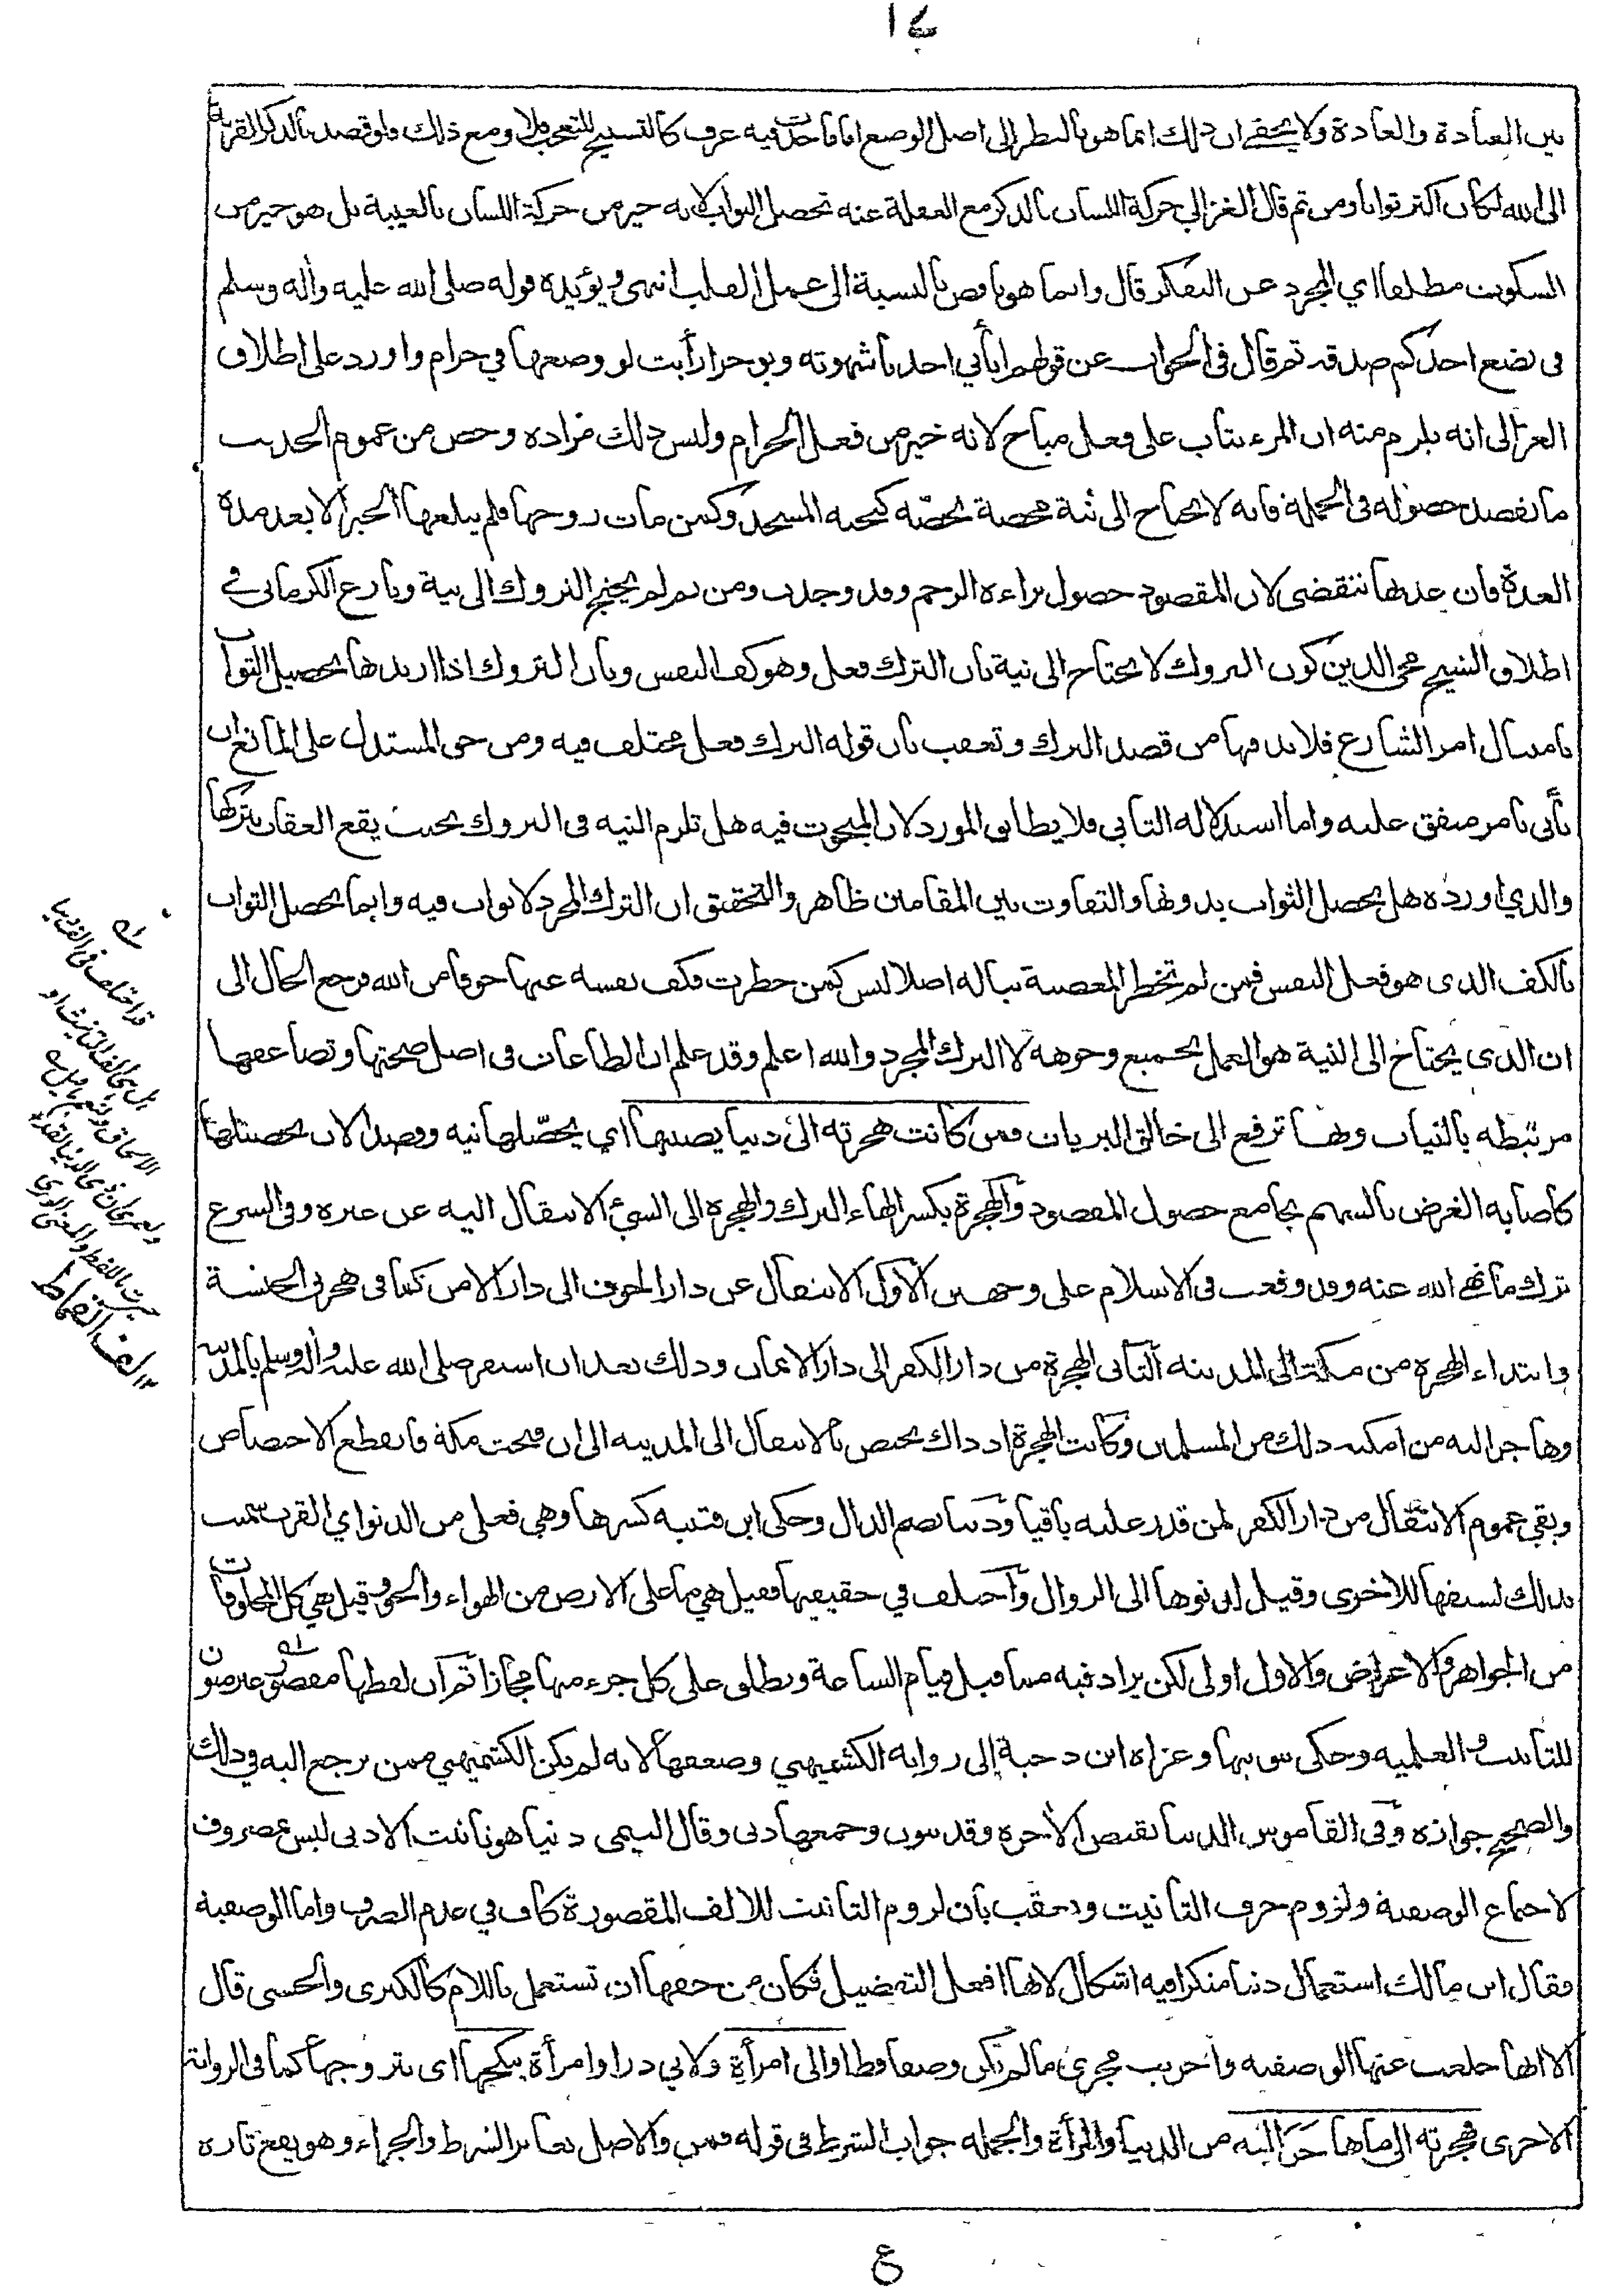 بين العبادة والعادة ولا يخفى ان ذلك انما هو بالنظر الى اصل الوضع اما ما حدث فيه عرف كالتسبيح للتعجب فلا ومع ذلك فلو قصد بالذكر القربة
الى الله لكان اكثر ثوابا ومن ثم قال الغزالي حركة اللسان بالذكر مع الغفلة عنه تحصل الثواب لانه خير من حركة اللسان بالغيبة بل هو خير من
السكوت مطلقا اي المجرد عن التفكر قال وانما هو ناقص بالنسبة الى عمل القلب انتهى ويؤيده قوله صلى الله عليه وآله وسلم
في بضع احدكم صدقة ثم قال في الجواب عن قولهم أيأتي احدنا شهوته ويوجر أرأيت لو وضعها في حرام واورد على اطلاق
الغزالي انه يلزم منه ان المرء يثاب على فعل مباح لانه خير من فعل الحرام وليس ذلك مراده وخص من عموم الحديث
ما يقصد حصوله في الجملة فانه لا يحتاج الى نية مخصة تخصّه كتحية المسجد وكمن مات زوجها فلم يبلغها الخبر الا بعد مدة
العدة فان عدتها تنقضي لان المقصود حصول براءة الرحم وقد وجدت ومن ثم لم يحتج التروك الى نية ونازع الكرماني في
اطلاق الشيخ محي الدين كون التروك لا يحتاج الى نية بان الترك فعل وهو كف النفس وبان التروك اذا اريد بها تحصيل الثواب
بامتثال امر الشارع فلا بد فيها من قصد الترك وتعقب بان قوله الترك فعل مختلف فيه ومن حق المستدل على المانع ان
يأتي بامر متفق عليه واما استدلاله الثاني فلا يطابق المورد لان المبحوث فيه هل تلزم النية في التروك بحيث يقع العقاب بتركها
والذي اورده هل يحصل الثواب بدونها والتفاوت بين المقامين ظاهر والتحقيق ان الترك المجرد لا ثواب فيه وانما يحصل الثواب
بالكف الذي هو فعل النفس فمن لم تخطر المعصية بباله اصلا ليس كمن خطرت فكف نفسه عنها خوفا من الله فرجع الحال الى
ان الذي يحتاج الى النية هو العمل بجميع وجوهه لا الترك المجرد والله اعلم وقد علم ان الطاعات في اصل صحتها وتضاعفها
مرتبطة بالنيات وبها ترفع الى خالق البريات فمن كانت هجرته الى دنيا يصيبها اي يحصّلها نية وقصدا لان تحصيلها
كاصابة الغرض بالسهم بجامع حصول المقصود والهجرة بكسر الهاء الترك والهجرة الى الشئ الانتقال اليه عن غيره وفي الشرع
ترك ما نهى الله عنه وقد وقعت في الاسلام على وجهين الاول الانتقال عن دار الخوف الى دار الامن كما في هجرتي الحبشة
وابتداء الهجرة من مكة الى المدينة الثاني الهجرة من دار الكفر الى دار الايمان وذلك بعد ان استقر صلى الله عليه وآله وسلم بالمدينة
وهاجر اليه من امكنه ذلك من المسلمين وكانت الهجرة اذ ذاك تختص بالانتقال الى المدينة الى ان فتحت مكة فانقطع الاختصاص
وبقي عموم الانتقال من دار الكفر لمن قدر عليه باقيا ودنيا بضم الدال وحكى ابن قتيبة كسرها وهي فعلى من الدنو اي القرب سميت
بذلك لسبقها للاخرى وقيل لدنوها الى الزوال واختلف في حقيقتها فقيل هي ما على الارض من الهواء والجو وقيل هي كل المخلوقات
من الجواهر والاعراض والاول اولى لكن يراد فيه مما قبل قيام الساعة ويطلق على كل جزء منها مجازا ثم ان لفظها مقصور غير منون
للتأنيث والعلمية وحكى تنوينها وعزاه ابن دحية إلى رواية الكشميهني وضعفها لانه لم يكن الكشميهني ممن يرجع اليه في ذلك
والصحيح جوازه وفي القاموس الدنيا نقيض الآخرة وقد تنون وجمعها دنى وقال التيمي دنيا هو تأنيث الادنى ليس بمصروف
لاجتماع الوصفية ولزوم حرف التأنيث وتعقب بان لزوم التأنيث للالف المقصورة كاف في عدم الصرف واما الوصفية
فقال ابن مالك استعمال دنيا منكرا فيه اشكال لانها افعل التفضيل فكان من حقها ان تستعمل باللام كالكبرى والحسنى قال
الا انها خلعت عنها الوصفية واجريت مجرى ما لم يكن وصفا قط او الى امرأة ولابي ذر او امرأة ينكحها اى يتزوجها كما في الرواية
الاخرى فهجرته الى ما هاجر اليه من الدنيا والمرأة والجملة جواب الشرط في قوله فمن والاصل تغاير الشرط والجزاء وهو يقع تارة
ع